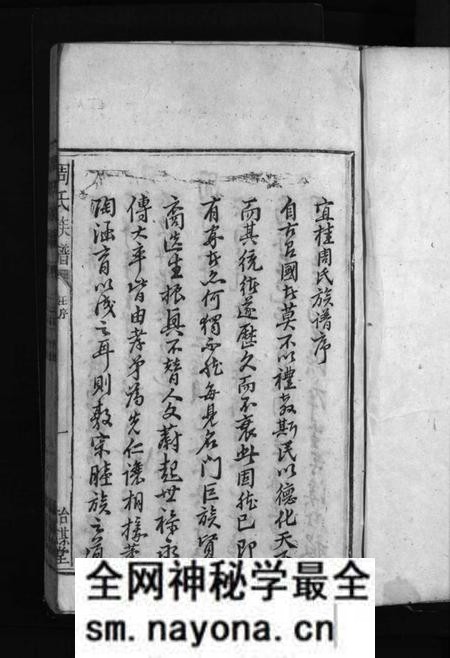 宜桂周氏族譜序
自古名國者莫不以禮教斯民以德化天下
而其統維遂歷久而不衰此固然已即
有家者亦何獨不然每見名門巨族賢
裔迭生振興不替人文蔚起世祿永
傳大率皆由孝弟為先仁讓相據
陶涵育以成之耳則敦宗睦族之道
周氏族譜
序
一
詒謀堂
全网神秘学最全
sm.nayona.cn